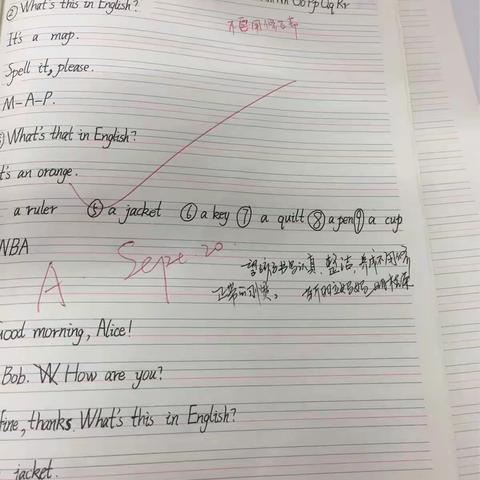 ② What's this in English?
It's a map.
不要用修正带
Spell it, please.
M-A-P.
What's that in English?
t's an orange.
a ruler ⑤ a jacket ⑥ a key ⑦ a quilt ⑧ a pen ⑨ a cup
NBA
A Sept. 20
书写认真、整洁,养成不用修
正带的习惯。
Good morning, Alice!
Bob. W How are you?
fine, thanks. What's this in English?
jacket.